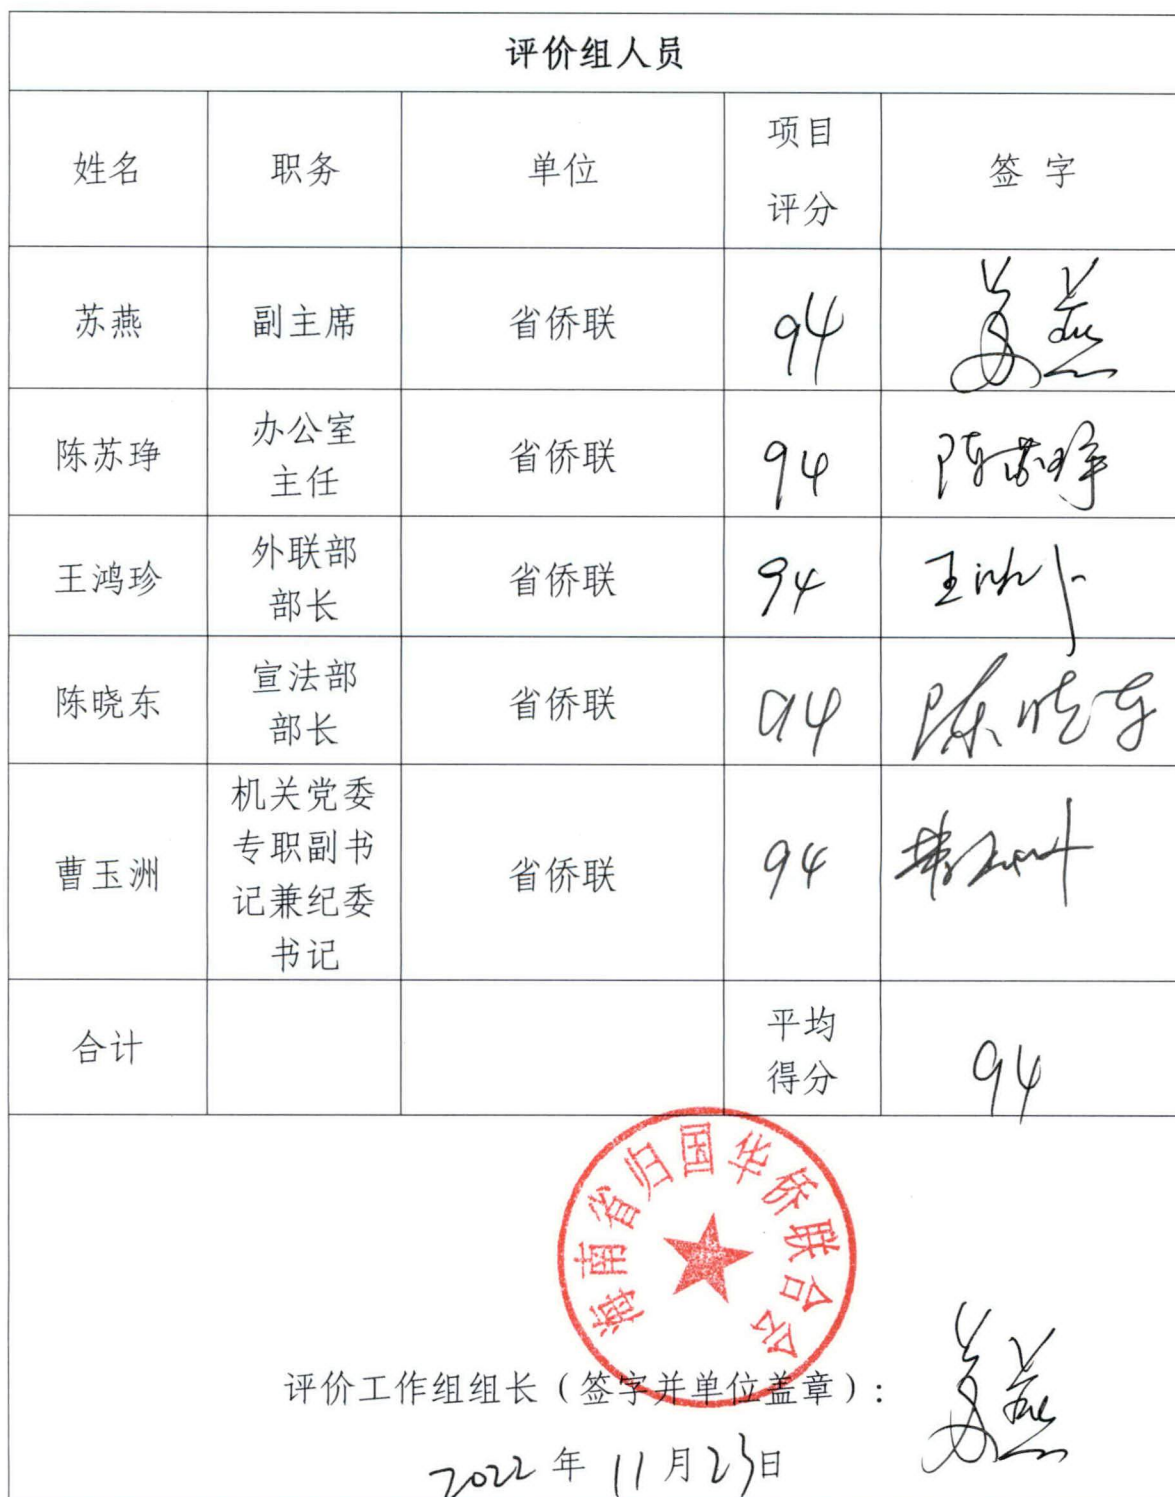 评价组人员
姓名 职务 单位 项目评分 签 字
苏燕 副主席 省侨联 94 苏燕
陈苏琤 办公室主任 省侨联 94 陈苏琤
王鸿珍 外联部部长 省侨联 94 王鸿珍
陈晓东 宣法部部长 省侨联 94 陈晓东
曹玉洲 机关党委专职副书记兼纪委书记 省侨联 94 曹玉洲
合计 平均得分 94
海南省归国华侨联合会
评价工作组组长（签字并单位盖章）： 苏燕
2022 年 11 月 23 日